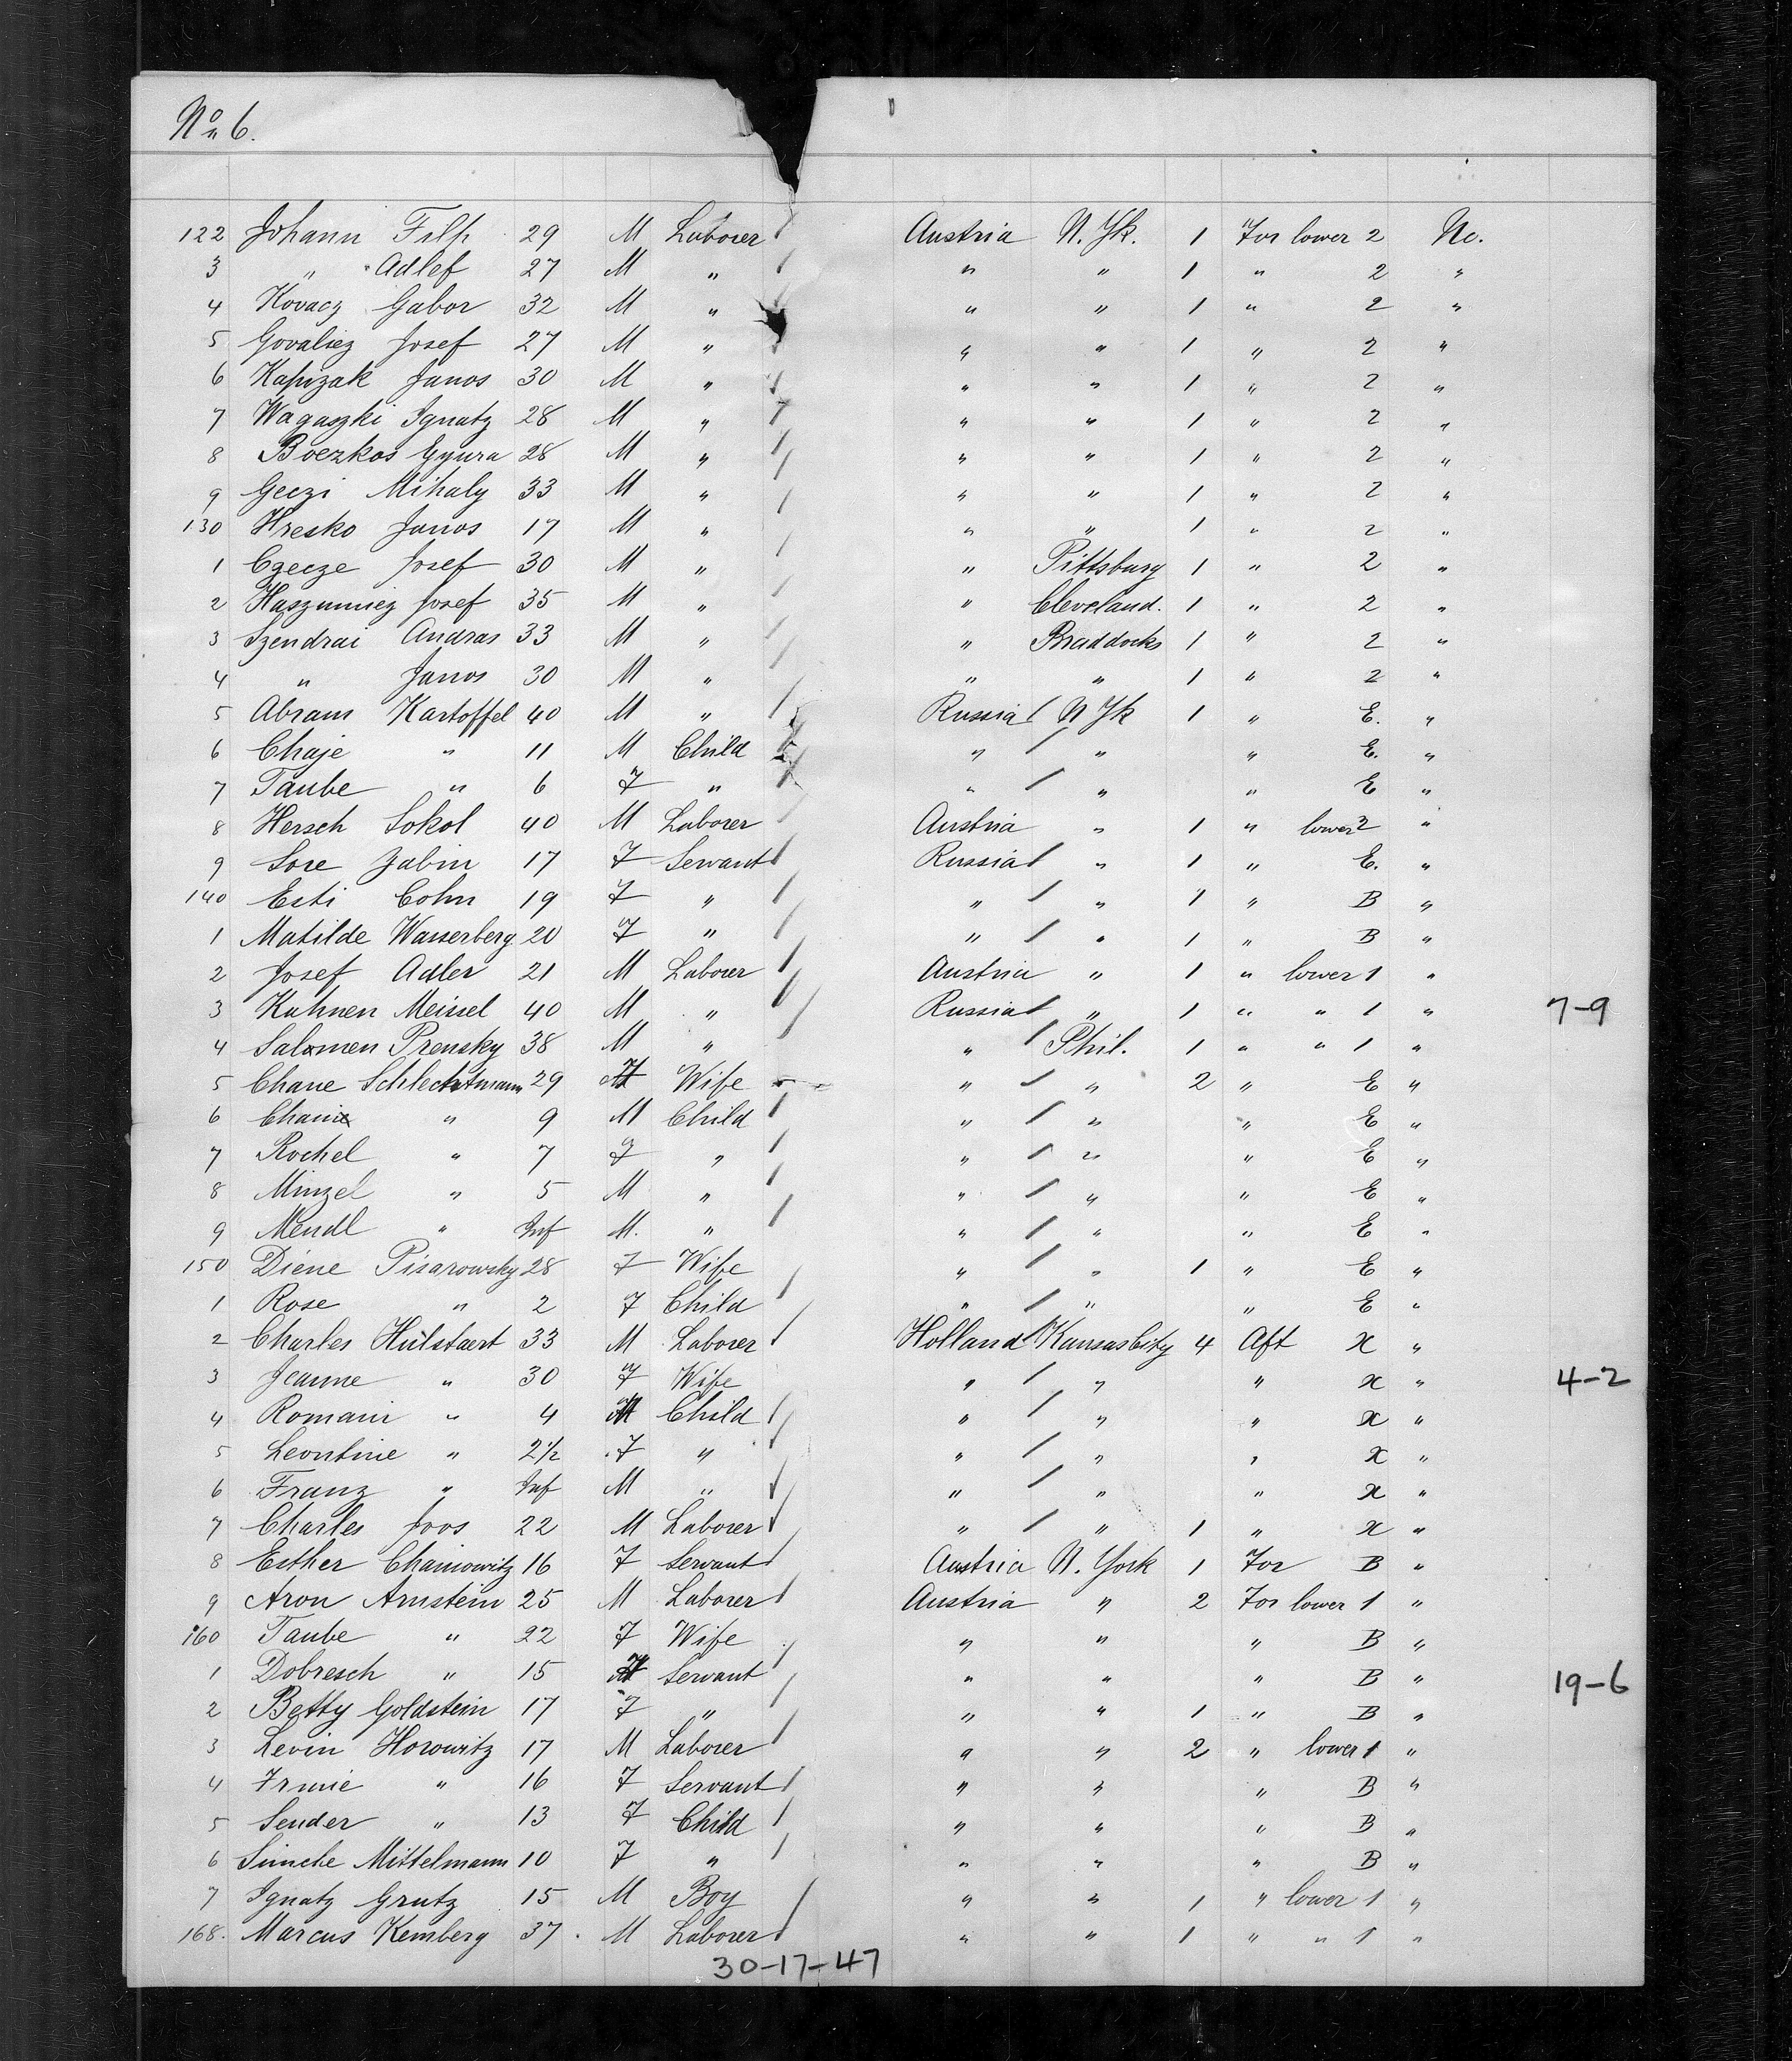 No 6.
122 Johann Filp 29 M Laborer Austria N. Yk. 1 For lower 2 No.
3 " Adlef 27 M " " " 1 " 2 "
4 Kovacz Gabor 32 M " " " 1 " 2 "
5 Govaliez Josef 27 M " " " 1 " 2 "
6 Kapczak Janos 30 M " " " 1 " 2 "
7 Wagaszki Ignatz 28 M " " " 1 " 2 "
8 Boczkos Gyura 28 M " " " 1 " 2 "
9 Geczi Mihaly 33 M " " " 1 " 2 "
130 Hresko Janos 17 M " " " 1 " 2 "
1 Czecze Josef 30 M " " Pittsburg 1 " 2 "
2 Haszunniez Josef 35 M " " Cleveland. 1 " 2 "
3 Szendrai Andras 33 M " " Braddocks 1 " 2 "
4 " Janos 30 M " " " 1 " 2 "
5 Abram Kartoffel 40 M " Russia N Yk 1 " E. "
6 Chaje " 11 M Child " " " E. "
7 Taube " 6 F " " " " E "
8 Hersch Sokol 40 M Laborer Austria " 1 " lower 2 "
9 Sore Jabin 17 F Servant Russia " 1 " E. "
140 Esti Cohn 19 F " " " 1 " B "
1 Matilde Wasserberg 20 F " " " 1 " B "
2 Josef Adler 21 M Laborer Austria " 1 " lower 1 "
3 Kuhnen Meissel 40 M " Russia " 1 " " 1 " 7-9
4 Salomen Prensky 38 M " " Phil. 1 " " 1 "
5 Chane Schlechtmann 29 F Wife " " 2 " E "
6 Chaim " 9 M Child " " " E "
7 Rochel " 7 F " " " " E "
8 Minzel " 5 M " " " " E "
9 Mendl " Inf M. " " " " E "
150 Diene Pisarowsky 28 F Wife " " 1 " E "
1 Rose " 2 F Child " " " E "
2 Charles Hülstaert 33 M Laborer Holland Kansas City 4 Aft X "
3 Jeanne " 30 F Wife " " " X " 4-2
4 Romain " 4 M Child " " " X "
5 Leontine " 2½ F " " " " X "
6 Franz " Inf M " " " " X "
7 Charles Joos 22 M Laborer " " 1 " X "
8 Esther Chaimowitz 16 F Servant Austria N. York 1 For B "
9 Aron Arnstein 25 M Laborer Austria " 2 For lower 1 "
160 Taube " 22 F Wife " " " B "
1 Dobresch " 15 F Servant " " " B " 19-6
2 Betty Goldstein 17 F " " " 1 " B "
3 Levin Horowitz 17 M Laborer " " 2 " lower 1 "
4 Irmie " 16 F Servant " " " B "
5 Sender " 13 F Child " " " B "
6 Simche Mittelmann 10 F " " " " B "
7 Ignatz Grutz 15 M Boy " " 1 " lower 1 "
168. Marcus Kemberg 37 M Laborer " " 1 " " 1 "
30-17-47